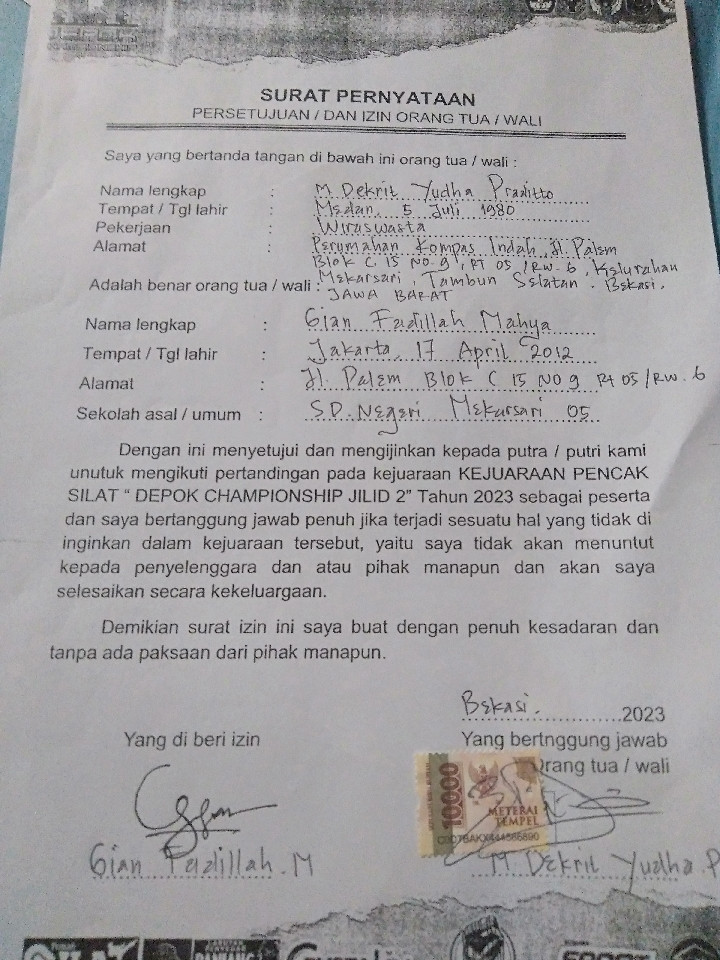 SURAT PERNYATAAN
PERSETUJUAN / DAN IZIN ORANG TUA / WALI
Saya yang bertanda tangan di bawah ini orang tua / wali :
Nama lengkap : M. Dekrit Yudha Praditto
Tempat / Tgl lahir : Medan, 5 Juli 1980
Pekerjaan : Wiraswasta
Alamat : Perumahan Kompas Indah, Jl. Palem
Blok C 15 NO 9, RT 05 / RW. 6, Kelurahan
Mekarsari, Tambun Selatan. Bekasi.
Adalah benar orang tua / wali :
JAWA BARAT
Nama lengkap : Gian Fadillah Mahya
Tempat / Tgl lahir : Jakarta, 17 April 2012
Alamat : Jl. Palem Blok C 15 NO 9 Rt 05 / RW. 6
Sekolah asal / umum : S.D. Negeri Mekarsari 05
Dengan ini menyetujui dan mengijinkan kepada putra / putri kami
unutuk mengikuti pertandingan pada kejuaraan KEJUARAAN PENCAK
SILAT “ DEPOK CHAMPIONSHIP JILID 2” Tahun 2023 sebagai peserta
dan saya bertanggung jawab penuh jika terjadi sesuatu hal yang tidak di
inginkan dalam kejuaraan tersebut, yaitu saya tidak akan menuntut
kepada penyelenggara dan atau pihak manapun dan akan saya
selesaikan secara kekeluargaan.
Demikian surat izin ini saya buat dengan penuh kesadaran dan
tanpa ada paksaan dari pihak manapun.
Bekasi. 2023
Yang di beri izin
Yang bertnggung jawab
Orang tua / wali
10000
METERAI
TEMPEL
Gian Fadillah. M
M Dekrit Yudha P